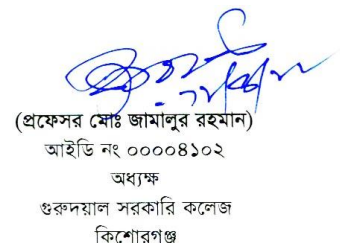 (প্রফেসর মোঃ জামালুর রহমান)
আইডি নং ০০০০৪১০২
অধ্যক্ষ
গুরুদয়াল সরকারি কলেজ
কিশোরগঞ্জ